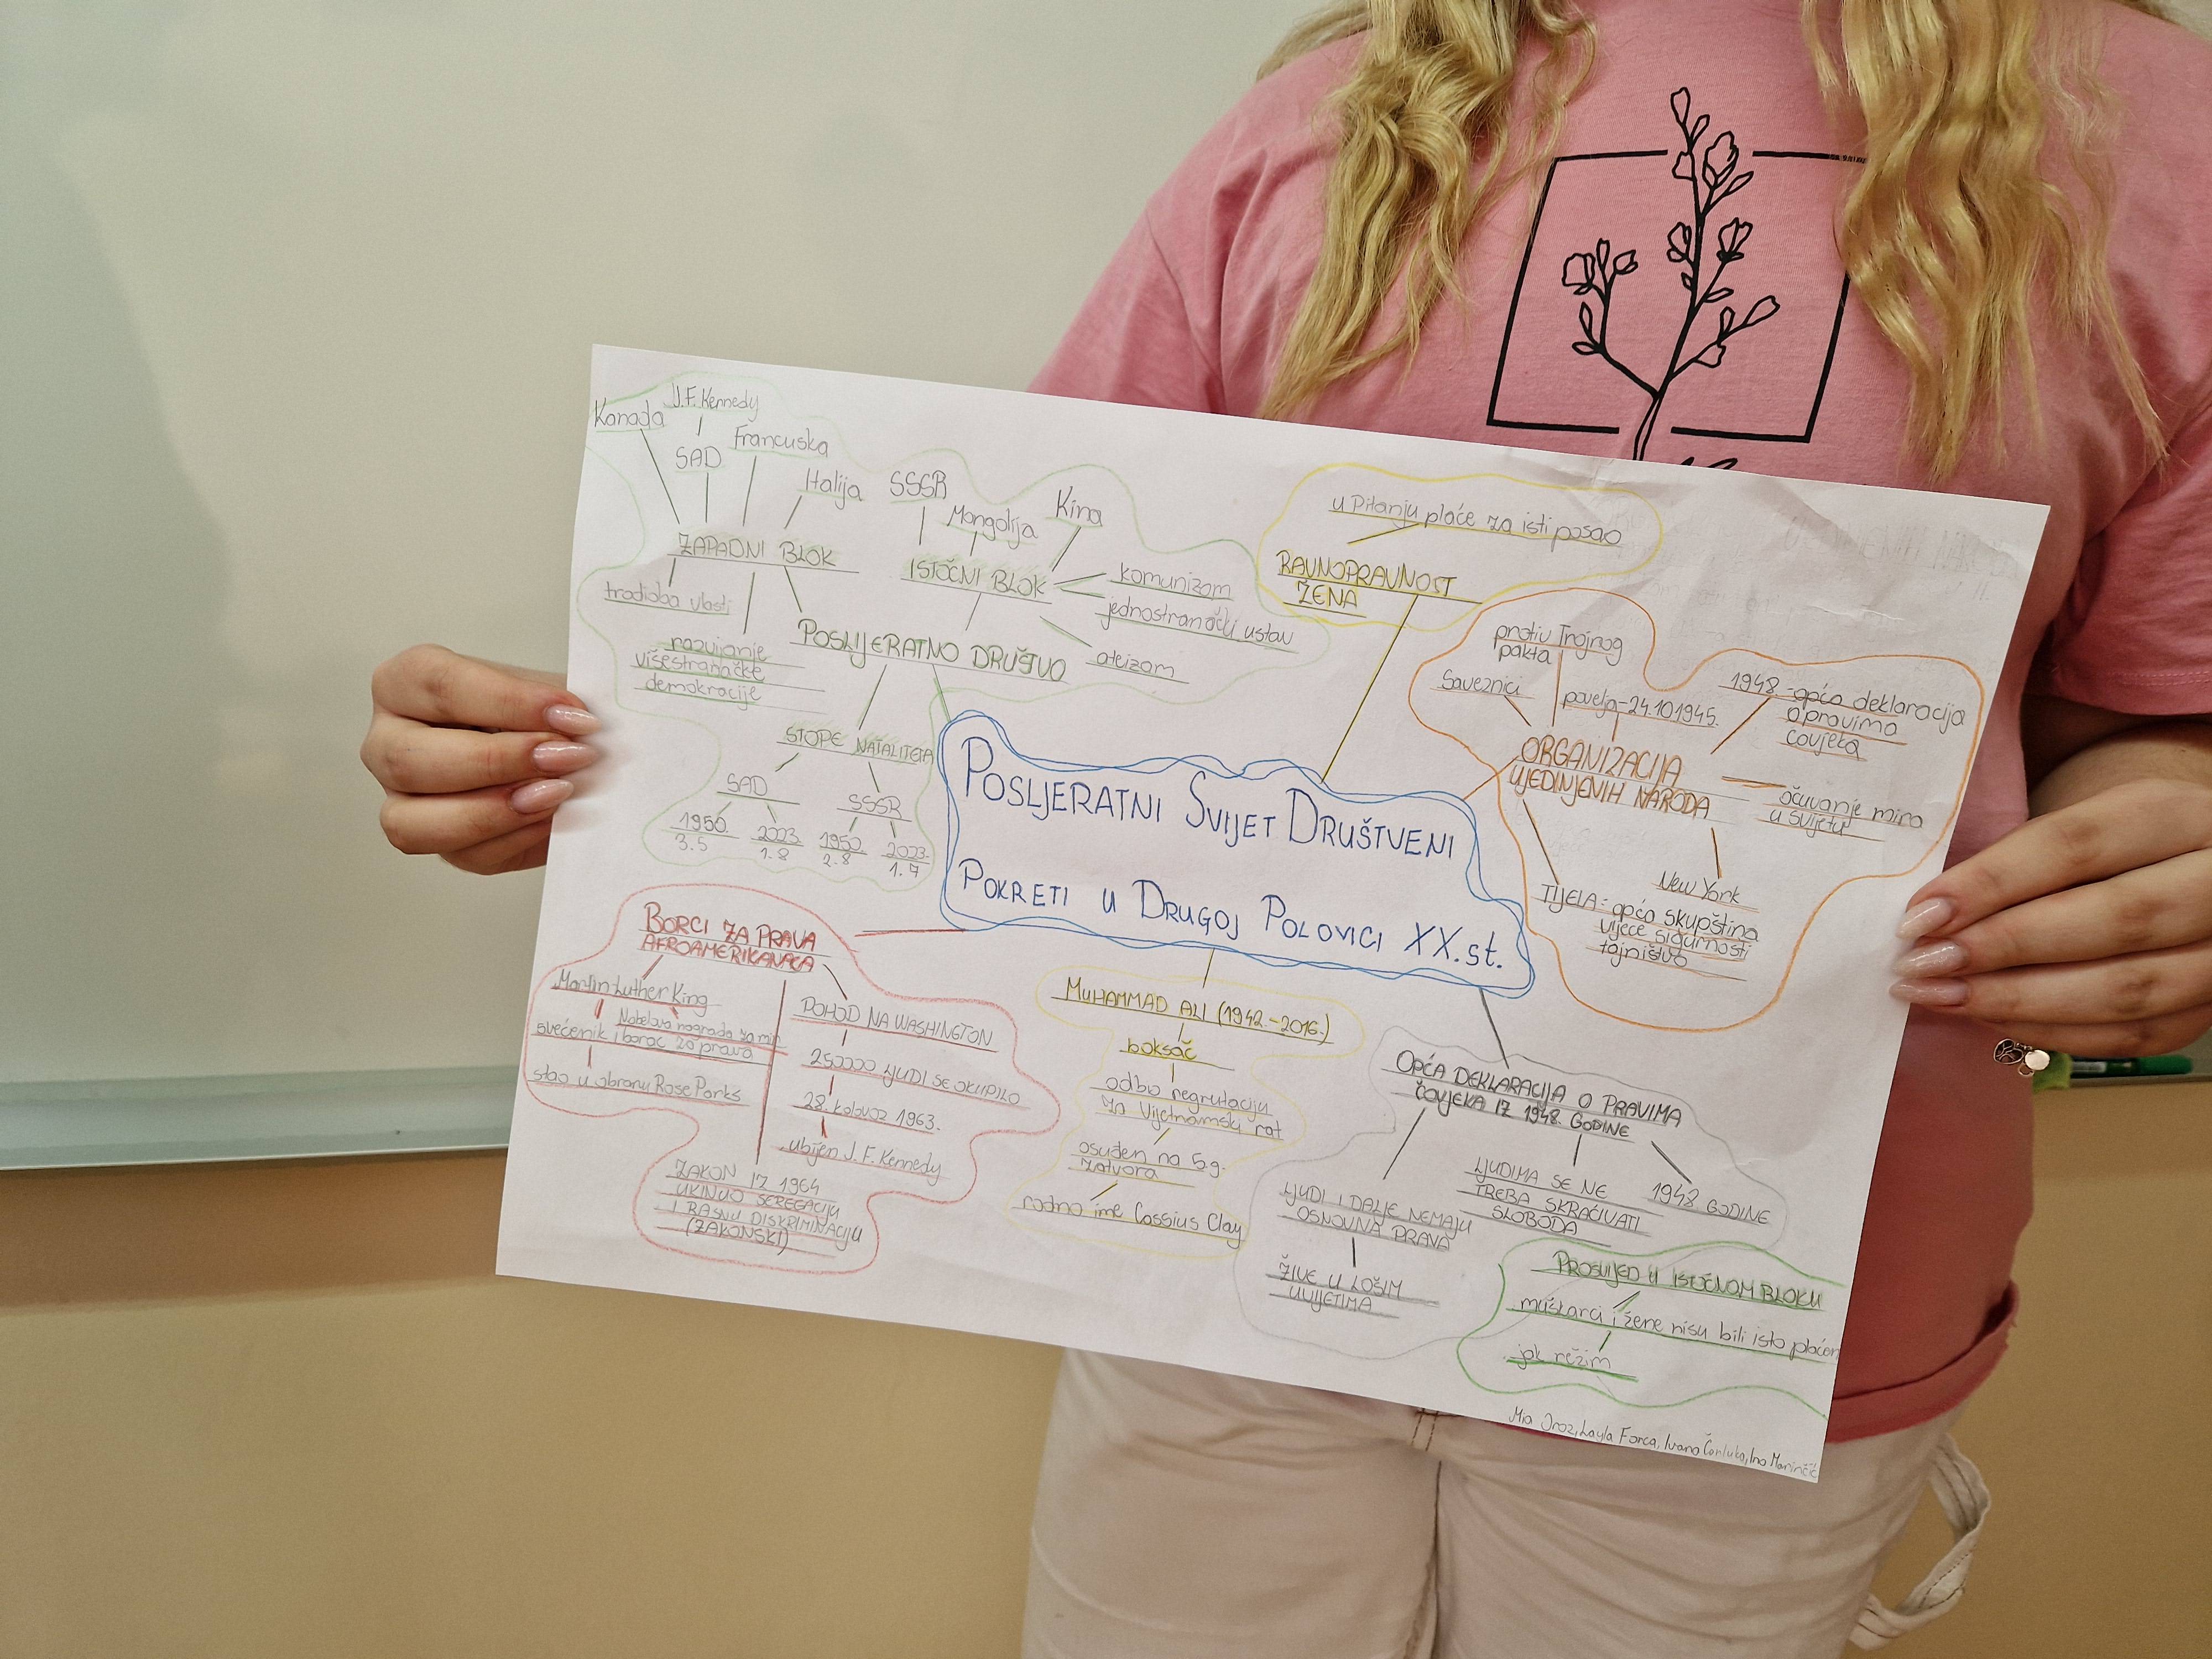 Kanada
J.F. Kennedy
SAD
Francuska
Italija
ZAPADNI BLOK
tradioba vlasti
razvijanje
višestranačke
demokracije
SSSR
Mongolija
Kina
ISTOČNI BLOK
komunizam
jednostranački ustav
ateizam
POSLIJERATNO DRUŠTVO
STOPE NATALITETA
SAD
SSSR
1950.
3.5
2023.
1.8
1950.
2.8
2023.
1.7
u pitanju plaće za isti posao
RAVNOPRAVNOST
ŽENA
protiv Trojnog
pakta
Saveznici
povelja-24.10.1945.
1948.-opća deklaracija
o pravima
čovjeka
ORGANIZACIJA
UJEDINJENIH NARODA
očuvanje mira
u svijetu
New York
TIJELA: opća skupština
vijeće sigurnosti
tajništvo
POSLJERATNI SVIJET DRUŠTVENI
POKRETI U DRUGOJ POLOVICI XX.st.
BORCI ZA PRAVA
AFROAMERIKANACA
Martin Luther King
Nobelova nagrada za mir
svećenik i borac za prava
stao u obranu Rose Parks
POHOD NA WASHINGTON
250000 LJUDI SE OKUPILO
28. kolovoz 1963.
ubijen J. F. Kennedy
ZAKON IZ 1964
UKINUO SEREGACIJU
I RASNU DISKRIMINACIJU
(ZAKONSKI)
MUHAMMAD ALI (1942.-2016.)
boksač
odbio regrutaciju
za Vijetnamski rat
osuđen na 5.g.
zatvora
rodno ime Cassius Clay
OPĆA DEKLARACIJA O PRAVIMA
ČOVJEKA IZ 1948. GODINE
LJUDI I DALJE NEMAJU
OSNOVNA PRAVA
ŽIVE U LOŠIM
UVIJETIMA
LJUDIMA SE NE
TREBA SKRAĆIVATI
SLOBODA
1948 GODINE
PROSVIJED U ISTOČNOM BLOKU
muškarci i žene nisu bili isto plaćen
jak režim
Mia Layla Forca, Ivana Čarluka, Ina Marinčić